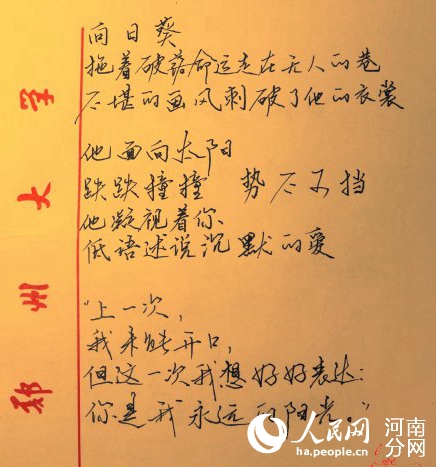 向日葵
拖着破落命运走在无人的巷
不堪的画风刺破了他的衣裳
他面向太阳
跌跌撞撞 势不可挡
他凝视着你
低语述说沉默的爱
“上一次，
我未能开口，
但这一次我想好好表达：
你是我永远的阳光。”
郑州大学
人民网 河南分网
ha.people.cn